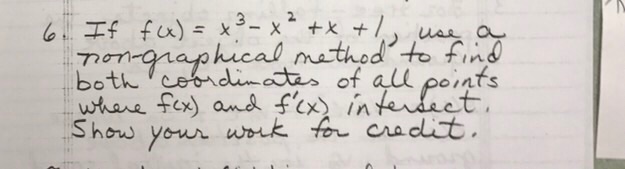 6. If f(x) = x³ - x² + x + 1, use a
non-graphical method to find
both coordinates of all points
where f(x) and f'(x) intersect.
Show your work for credit.